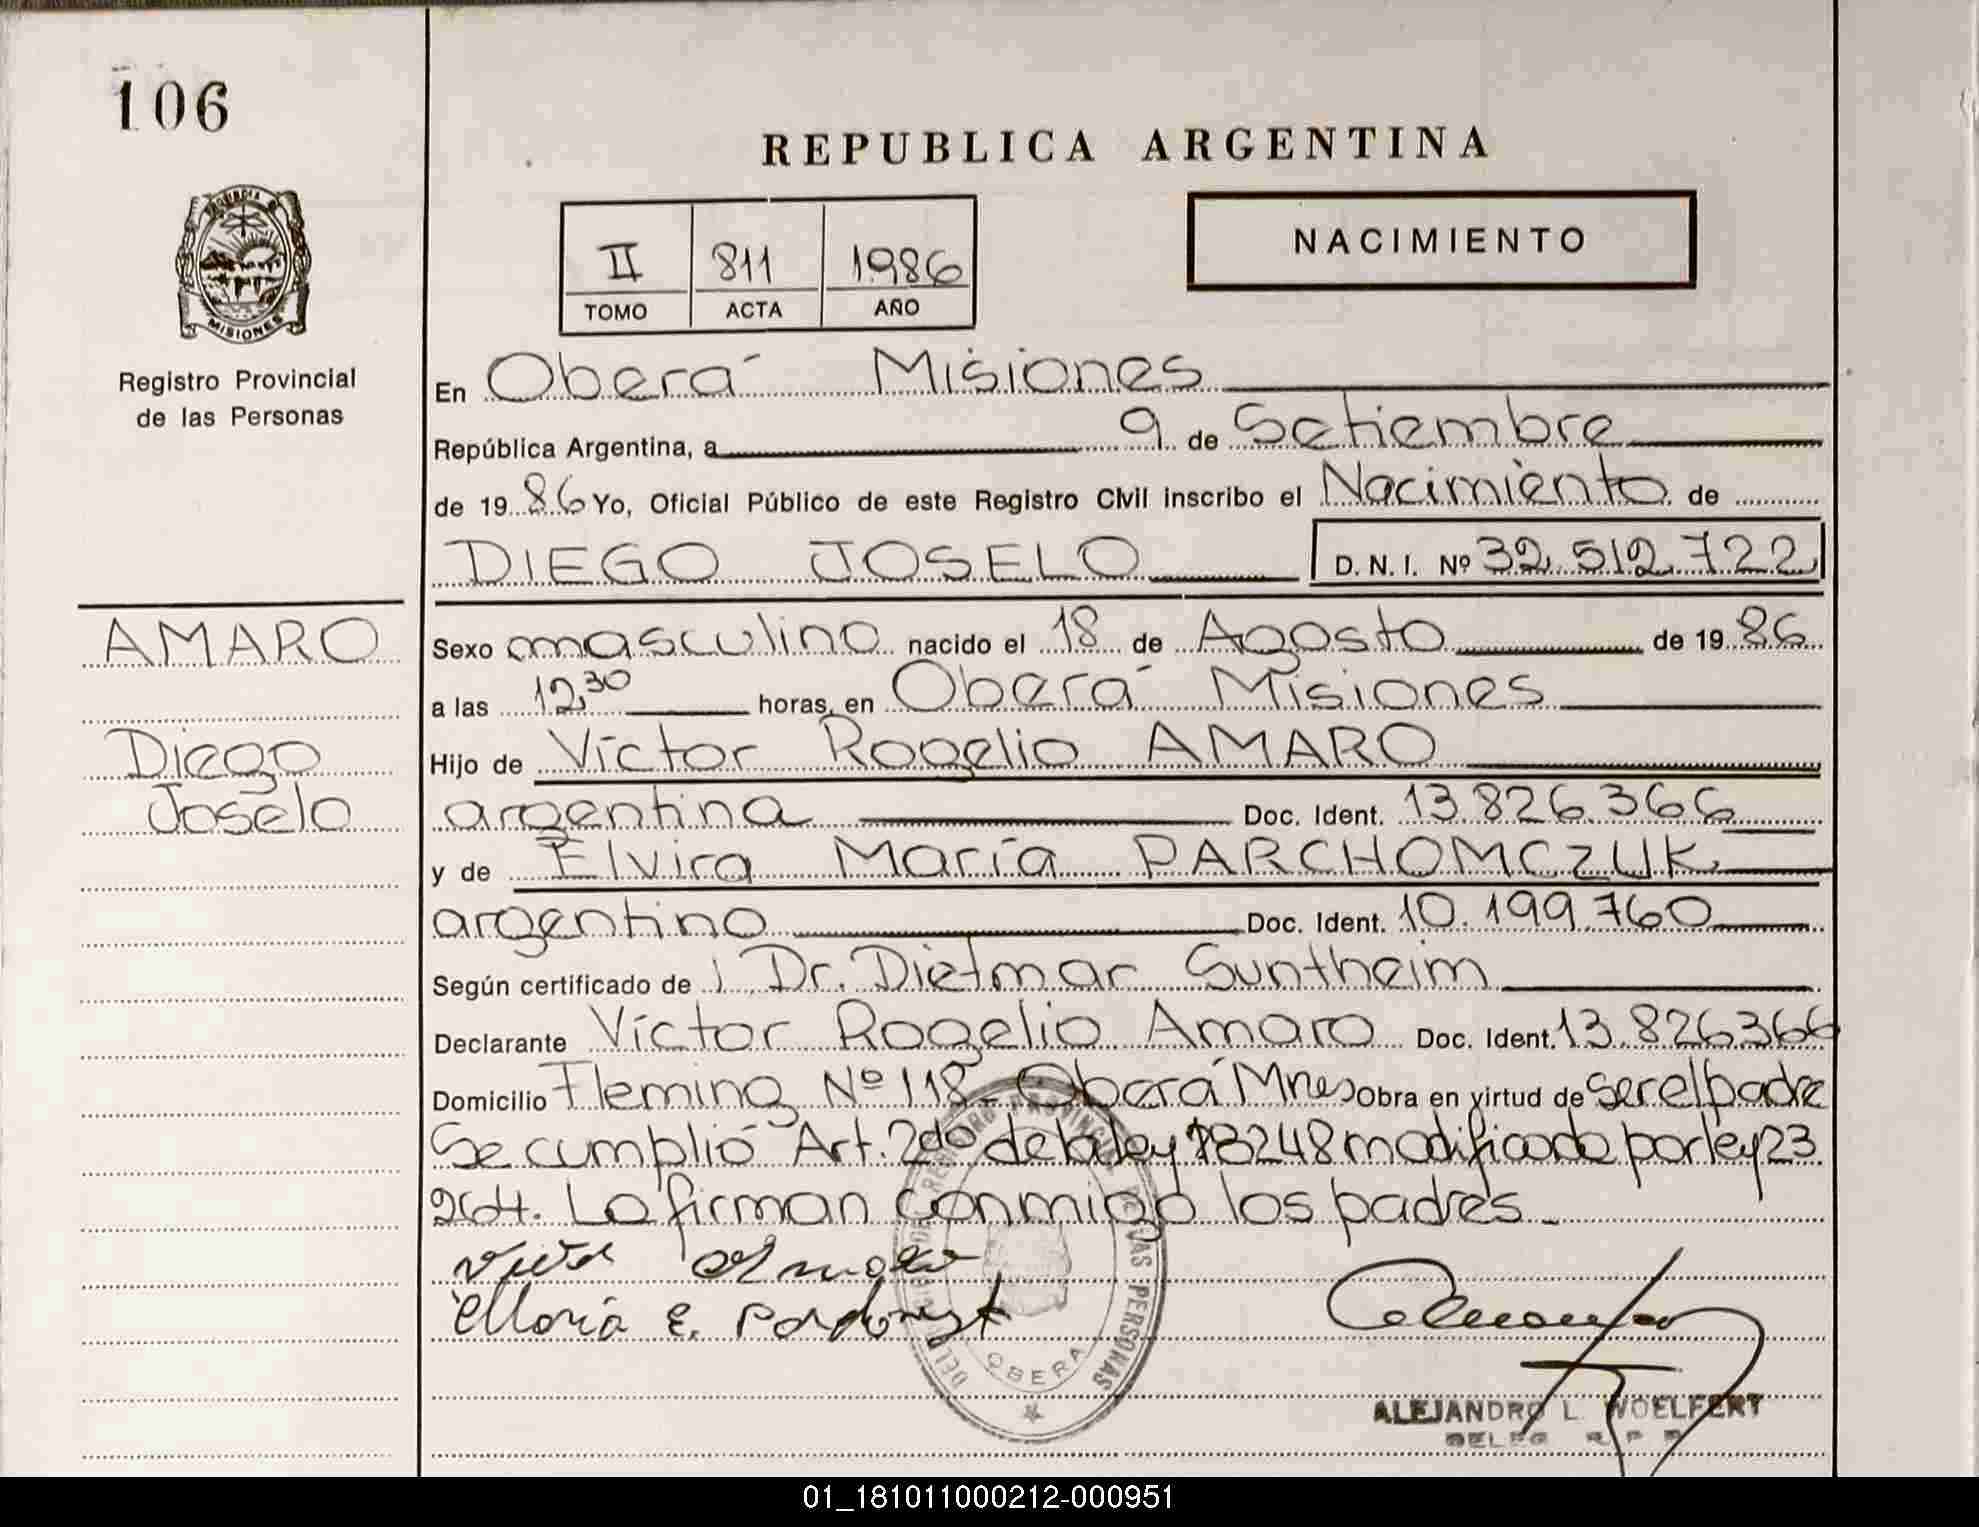 106
REPUBLICA ARGENTINA
PROVINCIA DE
MISIONES
Registro Provincial
de las Personas
II 811 1986
TOMO ACTA AÑO
NACIMIENTO
En Oberá Misiones
República Argentina, a 9 de Setiembre
de 1986 Yo, Oficial Público de este Registro Civil inscribo el Nacimiento de
DIEGO JOSELO D. N. I. Nº 32.512.722
AMARO
Diego
Joselo
Sexo masculino nacido el 18 de Agosto de 1986
a las 12,30 horas, en Oberá Misiones
Hijo de Víctor Rogelio AMARO
argentina Doc. Ident. 13.826.366
y de Elvira María PARCHOMCZUK
argentino Doc. Ident. 10.199.760
Según certificado de Dr. Dietmar Suntheim
Declarante Víctor Rogelio Amaro Doc. Ident. 13.826366
Domicilio Fleming Nº 118- Oberá Mnes Obra en virtud de ser el padre
Se cumplió Art. 2do de la ley 18248 modificado por ley 23
264. Lo firman conmigo los padres-
María E.
OBERA
ALEJANDRO L. WOELFERT
DELEG R P P
01_181011000212-000951